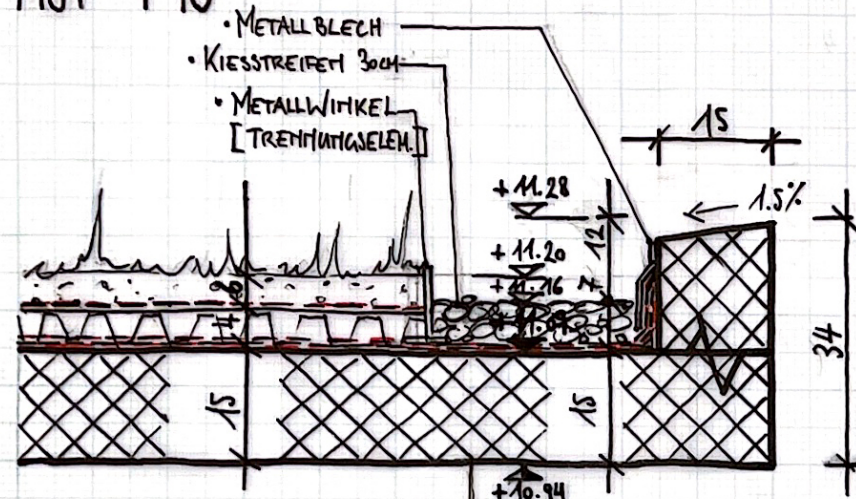 • METALLBLECH
• KIESSTREIFEN 30CM
• METALLWINKEL
[TRENNUNGSELEM.]
15
1.5%
+11.28
12
+11.20
+11.16
7
34
15
15
+10.94